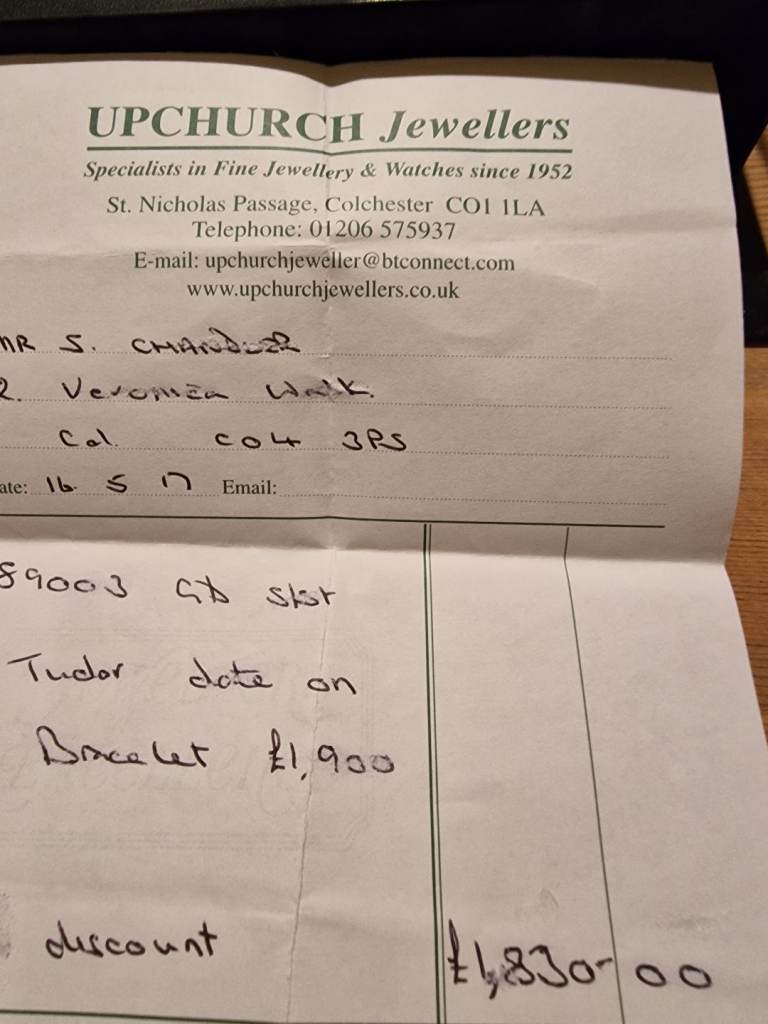 UPCHURCH Jewellers
Specialists in Fine Jewellery & Watches since 1952
St. Nicholas Passage, Colchester CO1 1LA
Telephone: 01206 575937
E-mail: upchurchjeweller@btconnect.com
www.upchurchjewellers.co.uk
MR S. CHANDLER
2. Veronica Walk.
Col. CO4 3PS
ate: 16 5 17 Email:
89003 Gts
Tudor date on
Bracelet £1,900
discount £1,830-00